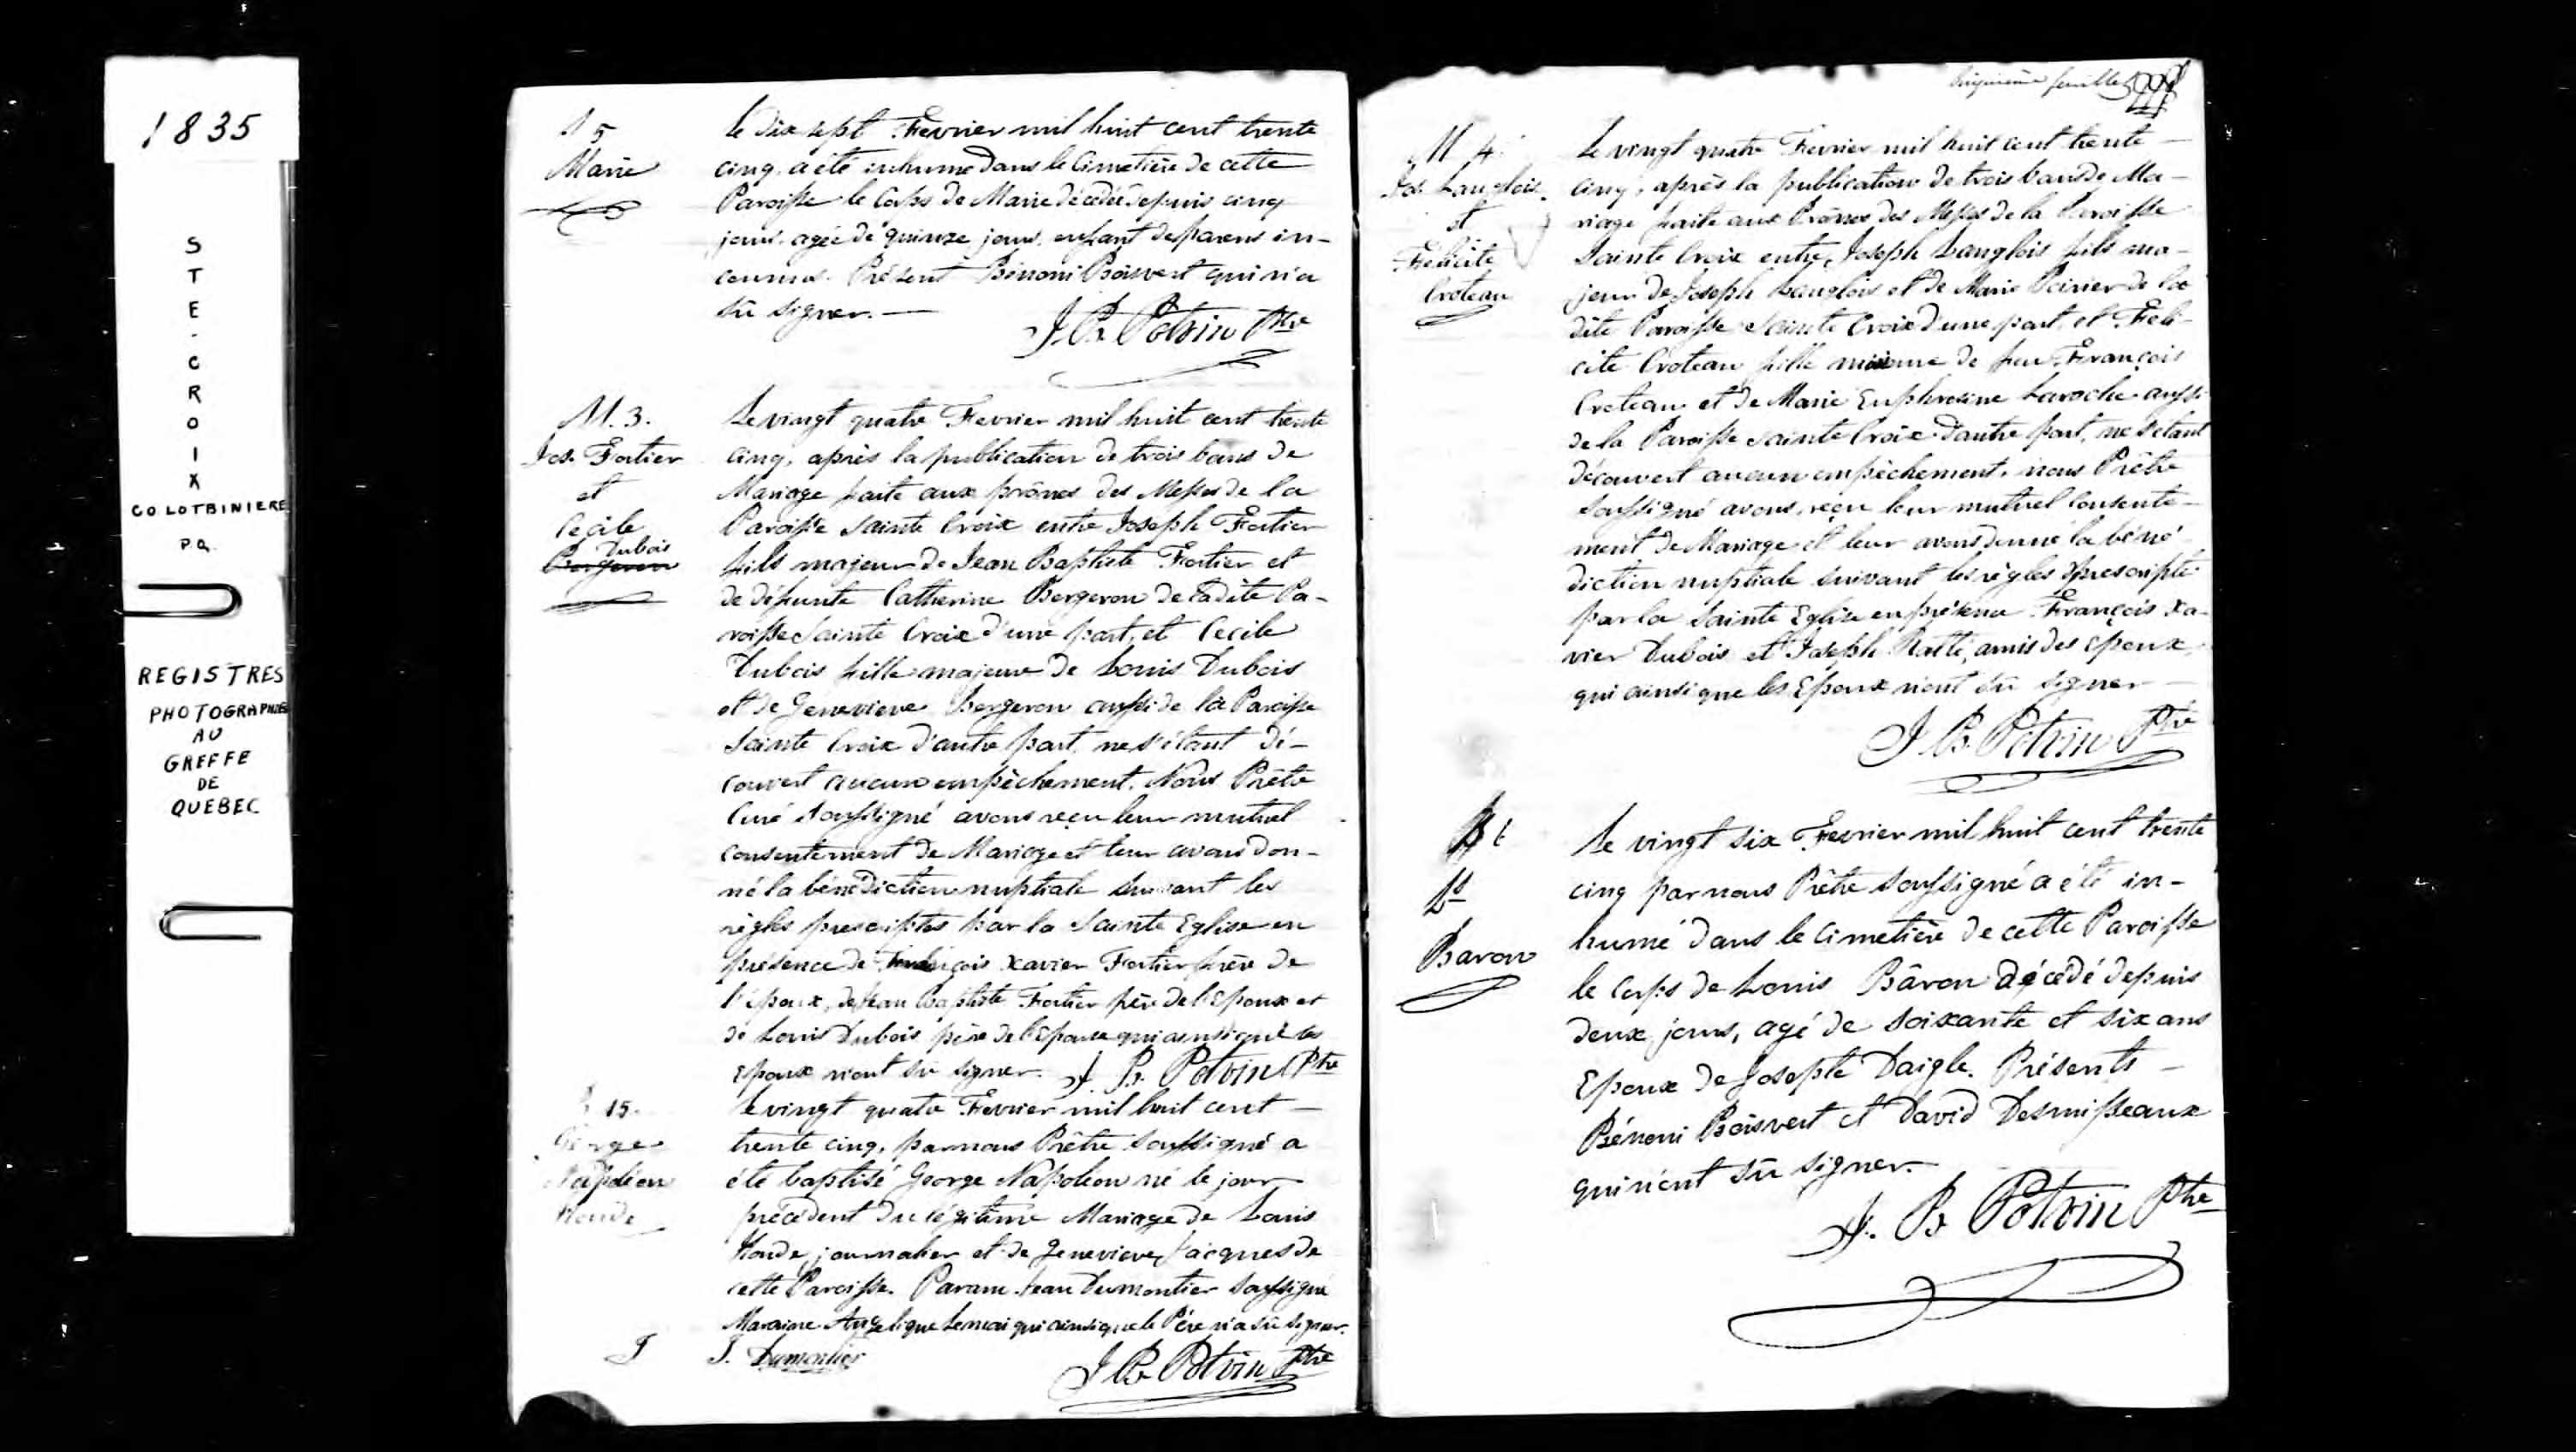 1835
STE-CROIX
CO LOTBINIERE
P.Q.
REGISTRES
PHOTOGRAPHIES
AU
GREFFE
DE
QUEBEC
S 5
Marie
Le dix sept Fevrier mil huit cent trente
cinq a été inhumé dans le Cimetière de cette
Paroisse le Corps de Marie décédée depuis cinq
jours agée de quinze jours, enfant de parens in-
connus. Présent Bénoni Boisvert qui n'a
sû signer. —
J. B. Potvin Ptre
M. 3.
Jos. Fortier
et
Cecile
Dubois
Bergeron
Le vingt quatre Fevrier mil huit cent trente
cinq, après la publication de trois bans de
Mariage faite aux prônes des Messes de la
Paroisse Sainte Croix entre Joseph Fortier
fils majeur de Jean Baptiste Fortier et
de défunte Catherine Bergeron de ladite Pa-
roisse Sainte Croix d'une part, et Cecile
Dubois fille majeure de Louis Dubois
et de Genevieve Bergeron aussi de la Paroisse
Sainte Croix d'autre part, ne s'étant dé-
couvert aucun empêchement. Nous Prêtre
Curé soussigné avons reçu leur mutuel
consentement de Mariage et leur avons don-
né la bénédiction nuptiale suivant les
règles prescriptes par la Sainte Eglise en
présence de François Xavier Fortier frère de
l'époux, de Jean Baptiste Fortier père de l'Epoux et
de Louis Dubois père de l'Epouse qui ainsi que les
Epoux n'ont sû signer. J. B. Potvin Ptre
15.
George
Napoléon
Houde
Le vingt quatre Fevrier mil huit cent —
trente cinq, par nous Prêtre soussigné a
été baptisé George Napoléon né le jour
précédent du légitime Mariage de Louis
Houde, journalier et de Genevieve Jacques de
cette Paroisse. Parain Jean Dumontier soussigné
Maraine Angelique Lemai qui ainsi que le Père n'a sû signer.
J. Dumontier
J. B. Potvin Ptre
feuille
M 4.
Jos. Langlois
et
Felicite
Croteau
Le vingt quatre Fevrier mil huit cent trente —
cinq, après la publication de trois bans de Ma-
riage faite aux Prônes des Messes de la Paroisse
Sainte Croix entre Joseph Langlois fils ma-
jeur de Joseph Langlois et de Marie Poirier de la
dite Paroisse Sainte Croix d'une part, et Feli-
cite Croteau fille mineure de feu François
Croteau et de Marie Euphrosine Laroche aussi
de la Paroisse Sainte Croix d'autre part, ne s'étant
découvert aucun empêchement, nous Prêtre
soussigné avons reçu leur mutuel consente-
ment de Mariage et leur avons donné la béné-
diction nuptiale suivant les règles prescriptes
par la Sainte Eglise en présence François Xa-
vier Dubois et Joseph Ratté, amis des Epoux,
qui ainsi que les Epoux n'ont sû signer —
J. B. Potvin Ptre
Ls
Baron
Le vingt six Fevrier mil huit cent trente
cinq par nous Prêtre soussigné a été in-
humé dans le Cimetière de cette Paroisse
le Corps de Louis Bâron décédé depuis
deux jours, agé de soixante et six ans
Epoux de Josepte Daigle. Présents —
Bénoni Boisvert et David Desruisseaux
qui n'ont sû signer. —
J. B. Potvin Ptre